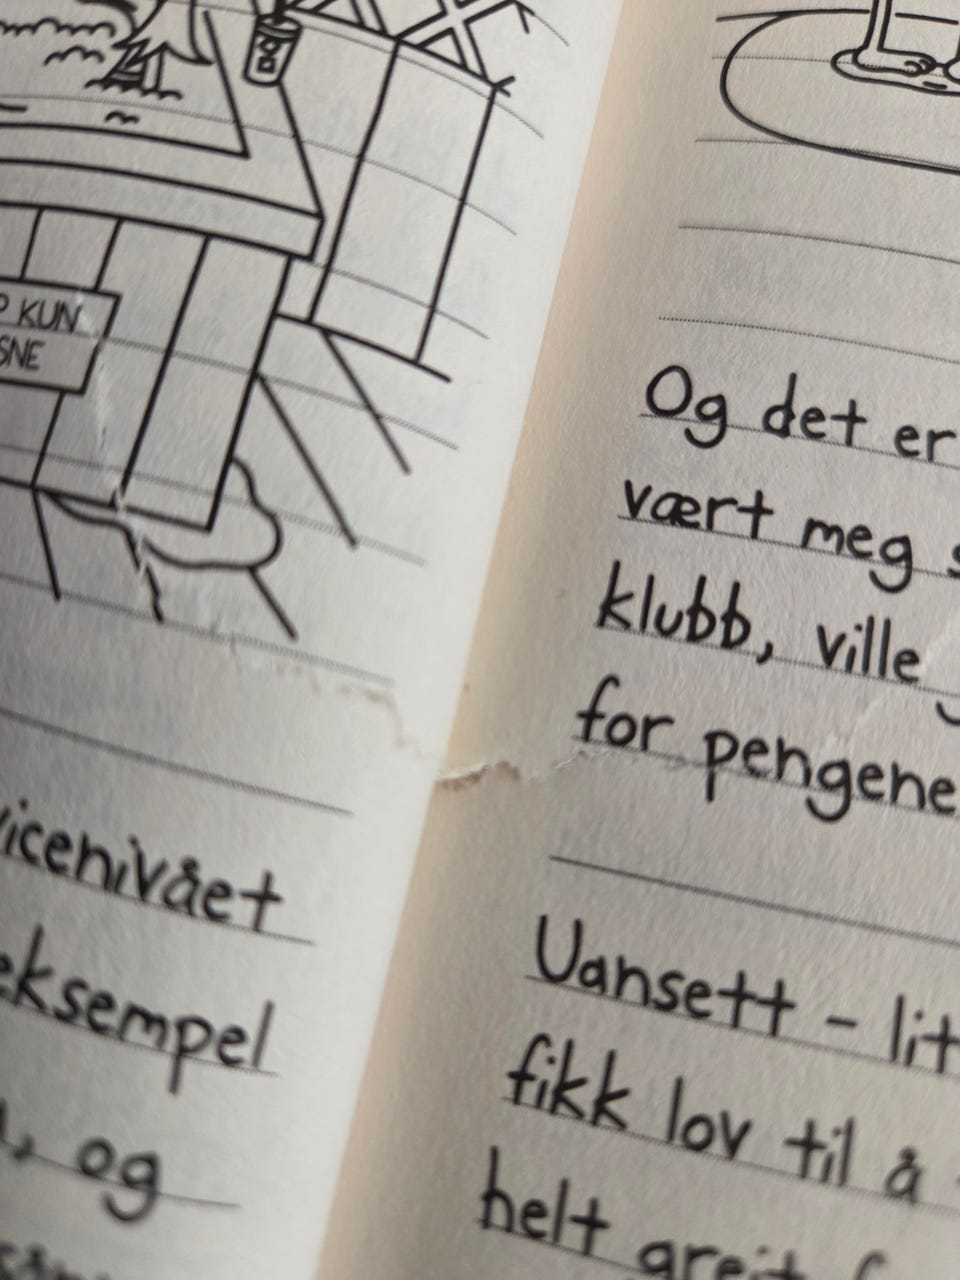 KUN
SNE
icenivået
eksempel
, og
Og det er
vært meg
klubb, ville
for pengene
Uansett – lit
fikk lov til å
helt greit